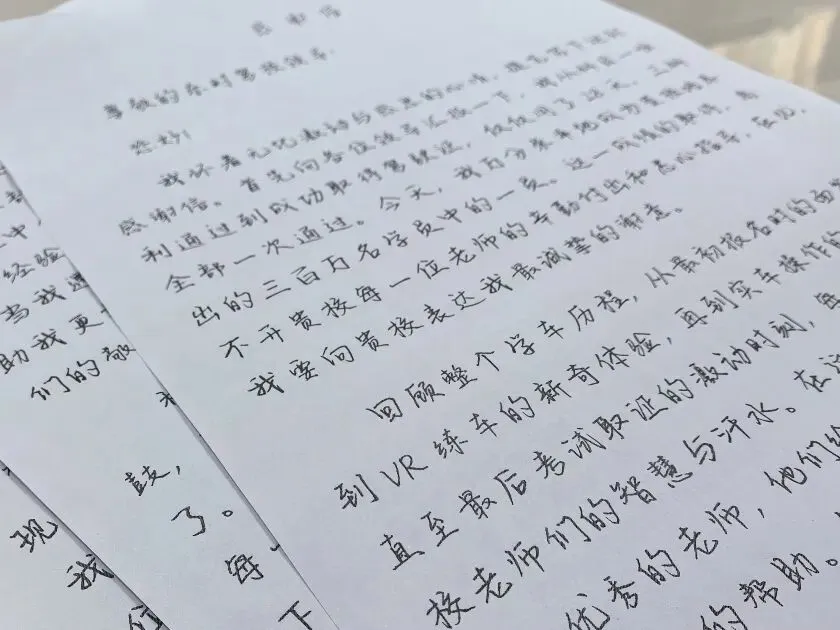 感谢信
尊敬的东时驾校领导:
您好!
我怀着无比激动与感恩的心情,提笔写下这封
感谢信。首先向各位领导汇报一下,我从科目一顺
利通过到成功取得驾驶证,仅仅用了28天,三
全部一次通过。今天,我万分荣幸地成为贵校
出的三百万名学员中的一员。这一成绩的取得,离
不开贵校每一位老师的辛勤付出和悉心指导,在此,
我要向贵校表达我最诚挚的谢意。
回顾整个学车历程,从最初报名时的面
到VR练车的新奇体验,再到实车操作的
直至最后考试取证的激动时刻,
校老师们的智慧与汗水。在
优秀的老师,他们
的帮助。
中,
经验
当我遇
助我更
们的敬
鼓,
了。
每
下
现
我
们